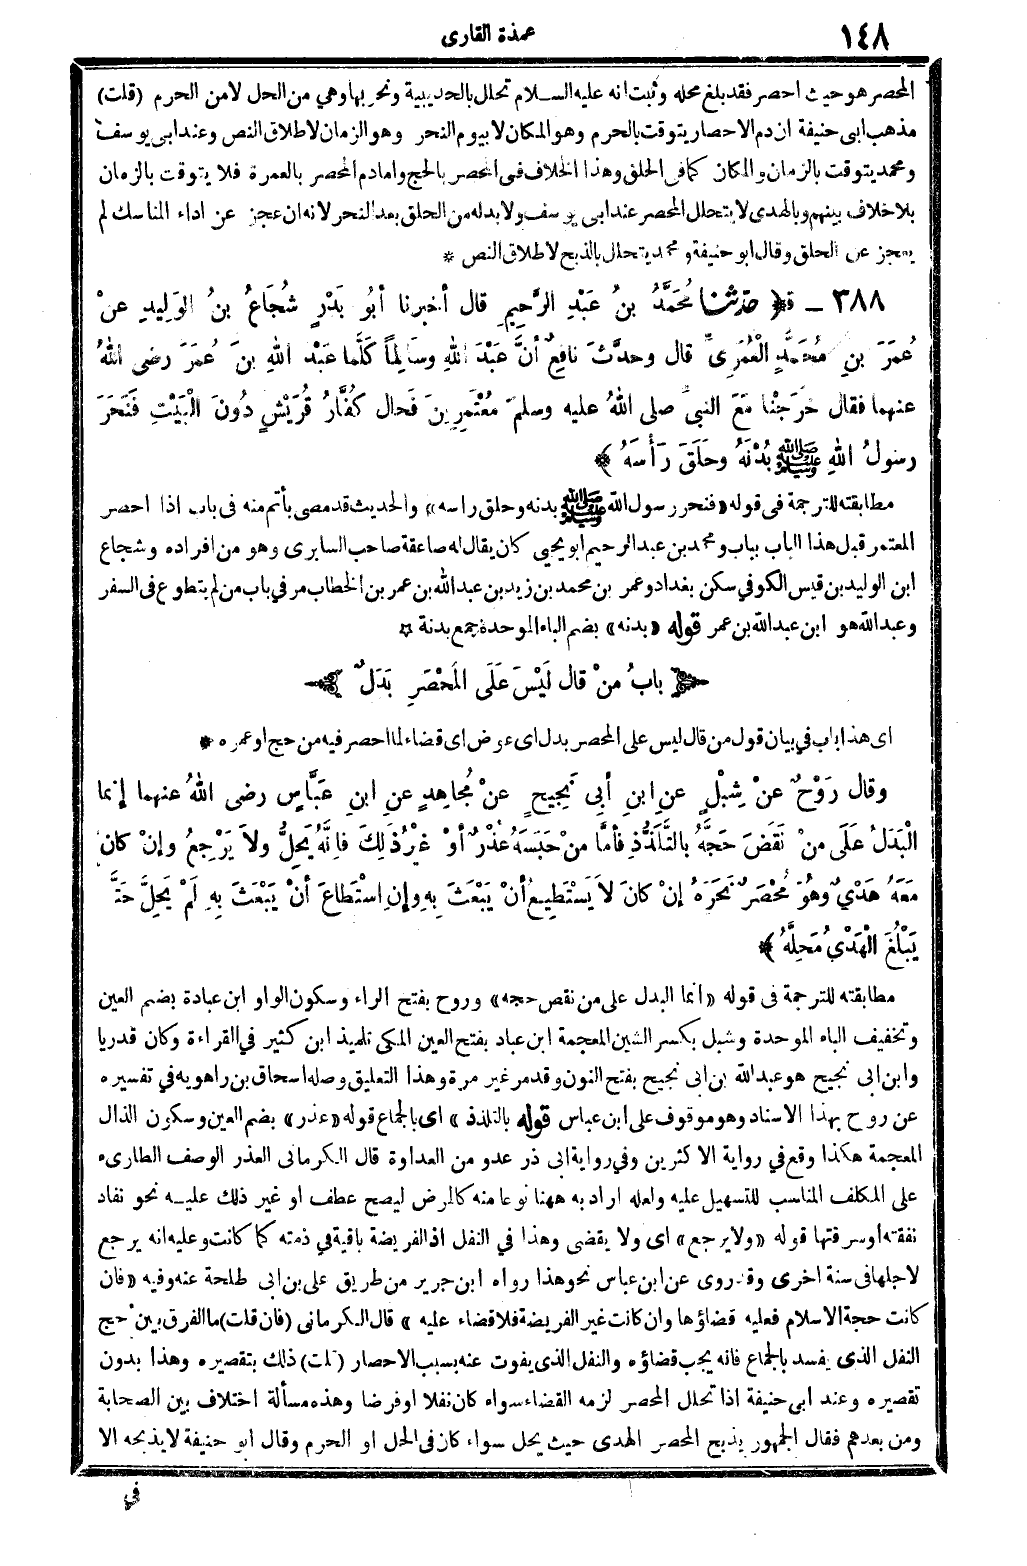 ١٤٨
عمدة القارى
المحصر هو حيث احصر فقد بلغ محله وثبت انه عليه السلام تحلل بالحديبية ونحر بها وهي من الحل لا من الحرم (قلت)
مذهب ابى حنيفة ان دم الاحصار يتوقت بالحرم وهو المكان لا بيوم النحر وهو الزمان لاطلاق النص وعند ابى يوسف
ومحمد يتوقت بالزمان والمكان كما فى الحلق وهذا الخلاف فى المحصر بالحج واما دم المحصر بالعمرة فلا يتوقت بالزمان
بلا خلاف بينهم وبالهدى لا يتحلل المحصر عند ابى يوسف ولا بد له من الحلق بعد النحر لانه ان عجز عن اداء المناسك لم
يعجز عن الحلق وقال ابو حنيفة ومحمد يتحلل بالذبح لاطلاق النص *
٣٨٨ ـ ﴿ حَدَّثَنَا مُحَمَّدُ بنُ عَبْدِ الرَّحِيمِ قال أخبرنا أبُو بَدْرٍ شُجَاعُ بنُ الوَلِيدِ عنْ
عُمَرَ بنِ مُحَمَّدٍ العُمَرِىِّ قال وحدَّثَ نافِعٌ أنَّ عَبْدَ اللهِ وسَالِماً كَلَّمَا عَبْدَ اللهِ بنَ عُمَرَ رضى اللهُ
عنهما فقال خَرَجْنا مَعَ النبىِّ صلى اللهُ عليه وسلم مُعْتَمِرِينَ فَحال كُفَّارُ قُرَيْشٍ دُونَ الْبَيْتِ فَنَحَرَ
رسولُ اللهِ ﷺ بُدْنَهُ وحَلَقَ رَأْسَهُ ﴾
مطابقته للترجمة فى قوله «فنحر رسول الله ﷺ بدنه وحلق راسه» والحديث قد مضى بأتم منه فى باب اذا احصر
المعتمر قبل هذا الباب بباب ومحمد بن عبد الرحيم ابو يحيى كان يقال له صاعقة صاحب السابرى وهو من افراده وشجاع
ابن الوليد بن قيس الكوفي سكن بغداد وعمر بن محمد بن زيد بن عبد الله بن عمر بن الخطاب مر في باب من لم يتطوع فى السفر
وعبد الله هو ابن عبد الله بن عمر قوله «بدنه» بضم الباء الموحدة جمع بدنة *
﴿ بابُ منْ قال لَيْسَ عَلَى المُحْصَرِ بَدَلٌ ﴾
اى هذا باب في بيان قول من قال ليس على المحصر بدل اى عوض اى قضاء لما احصر فيه من حج او عمره *
وقال رَوْحٌ عنْ شِبْلٍ عنِ ابنِ أبى نَجِيحٍ عنْ مُجاهِدٍ عنِ ابنِ عَبَّاسٍ رضى اللهُ عنهما إنما
الْبَدَلُ عَلَى منْ نَقَضَ حَجَّهُ بالتَّلَذُّذِ فأمَّا منْ حَبَسَهُ عُذْرٌ أوْ غَيْرُ ذَلِكَ فإنَّهُ يَحِلُّ ولاَ يَرْجِعُ وإنْ كانَ
مَعَهُ هَدْىٌ وهُوَ مُحْصَرٌ نَحَرَهُ إنْ كانَ لاَ يَسْتَطِيعُ أنْ يَبْعَثَ بِهِ وإنِ اسْتَطَاعَ أنْ يَبْعَثَ بِهِ لَمْ يَحِلَّ حَتَّى
يَبْلُغَ الْهَدْىُ مَحِلَّهُ ﴾
مطابقته للترجمة فى قوله «انما البدل على من نقض حجه» وروح بفتح الراء وسكون الواو ابن عبادة بضم العين
وتخفيف الباء الموحدة وشبل بكسر الشين المعجمة ابن عباد بفتح العين المكى تلميذ ابن كثير في القراءة وكان قدريا
وابن ابى نجيح هو عبد الله بن ابى نجيح بفتح النون وقد مر غير مرة وهذا التعليق وصله اسحاق بن راهويه في تفسيره
عن روح بهذا الاسناد وهو موقوف على ابن عباس قوله بالتلذذ» اى بالجماع قوله «عذر» بضم العين وسكون الذال
المعجمة هكذا وقع في رواية الاكثرين وفي رواية ابى ذر عدو من العداوة قال الكرمانى العذر الوصف الطارىء
على المكلف المناسب للتسهيل عليه ولعله اراد به ههنا نوعا منه كالمرض ليصح عطف او غير ذلك عليه نحو نفاد
نفقته او سرقتها قوله «ولا يرجع» اى ولا يقضى وهذا في النفل اذ الفريضة باقية في ذمته كما كانت وعليه انه يرجع
لاجلها فى سنة اخرى وقد روى عن ابن عباس نحو هذا رواه ابن جرير من طريق على بن ابى طلحة عنه وفيه «فان
كانت حجة الاسلام فعليه قضاؤها وان كانت غير الفريضة فلا قضاء عليه» قال الكرمانى (فان قلت) ما الفرق بين حج
النفل الذى يفسد بالجماع فانه يجب قضاؤه والنفل الذى يفوت عنه بسبب الاحصار (قلت) ذلك بتقصيره وهذا بدون
تقصيره وعند ابى حنيفة اذا تحلل المحصر لزمه القضاء سواء كان نفلا او فرضا وهذه مسألة اختلاف بين الصحابة
ومن بعدهم فقال الجمهور يذبح المحصر الهدى حيث يحل سواء كان فى الحل او الحرم وقال ابو حنيفة لا يذبحه الا
في